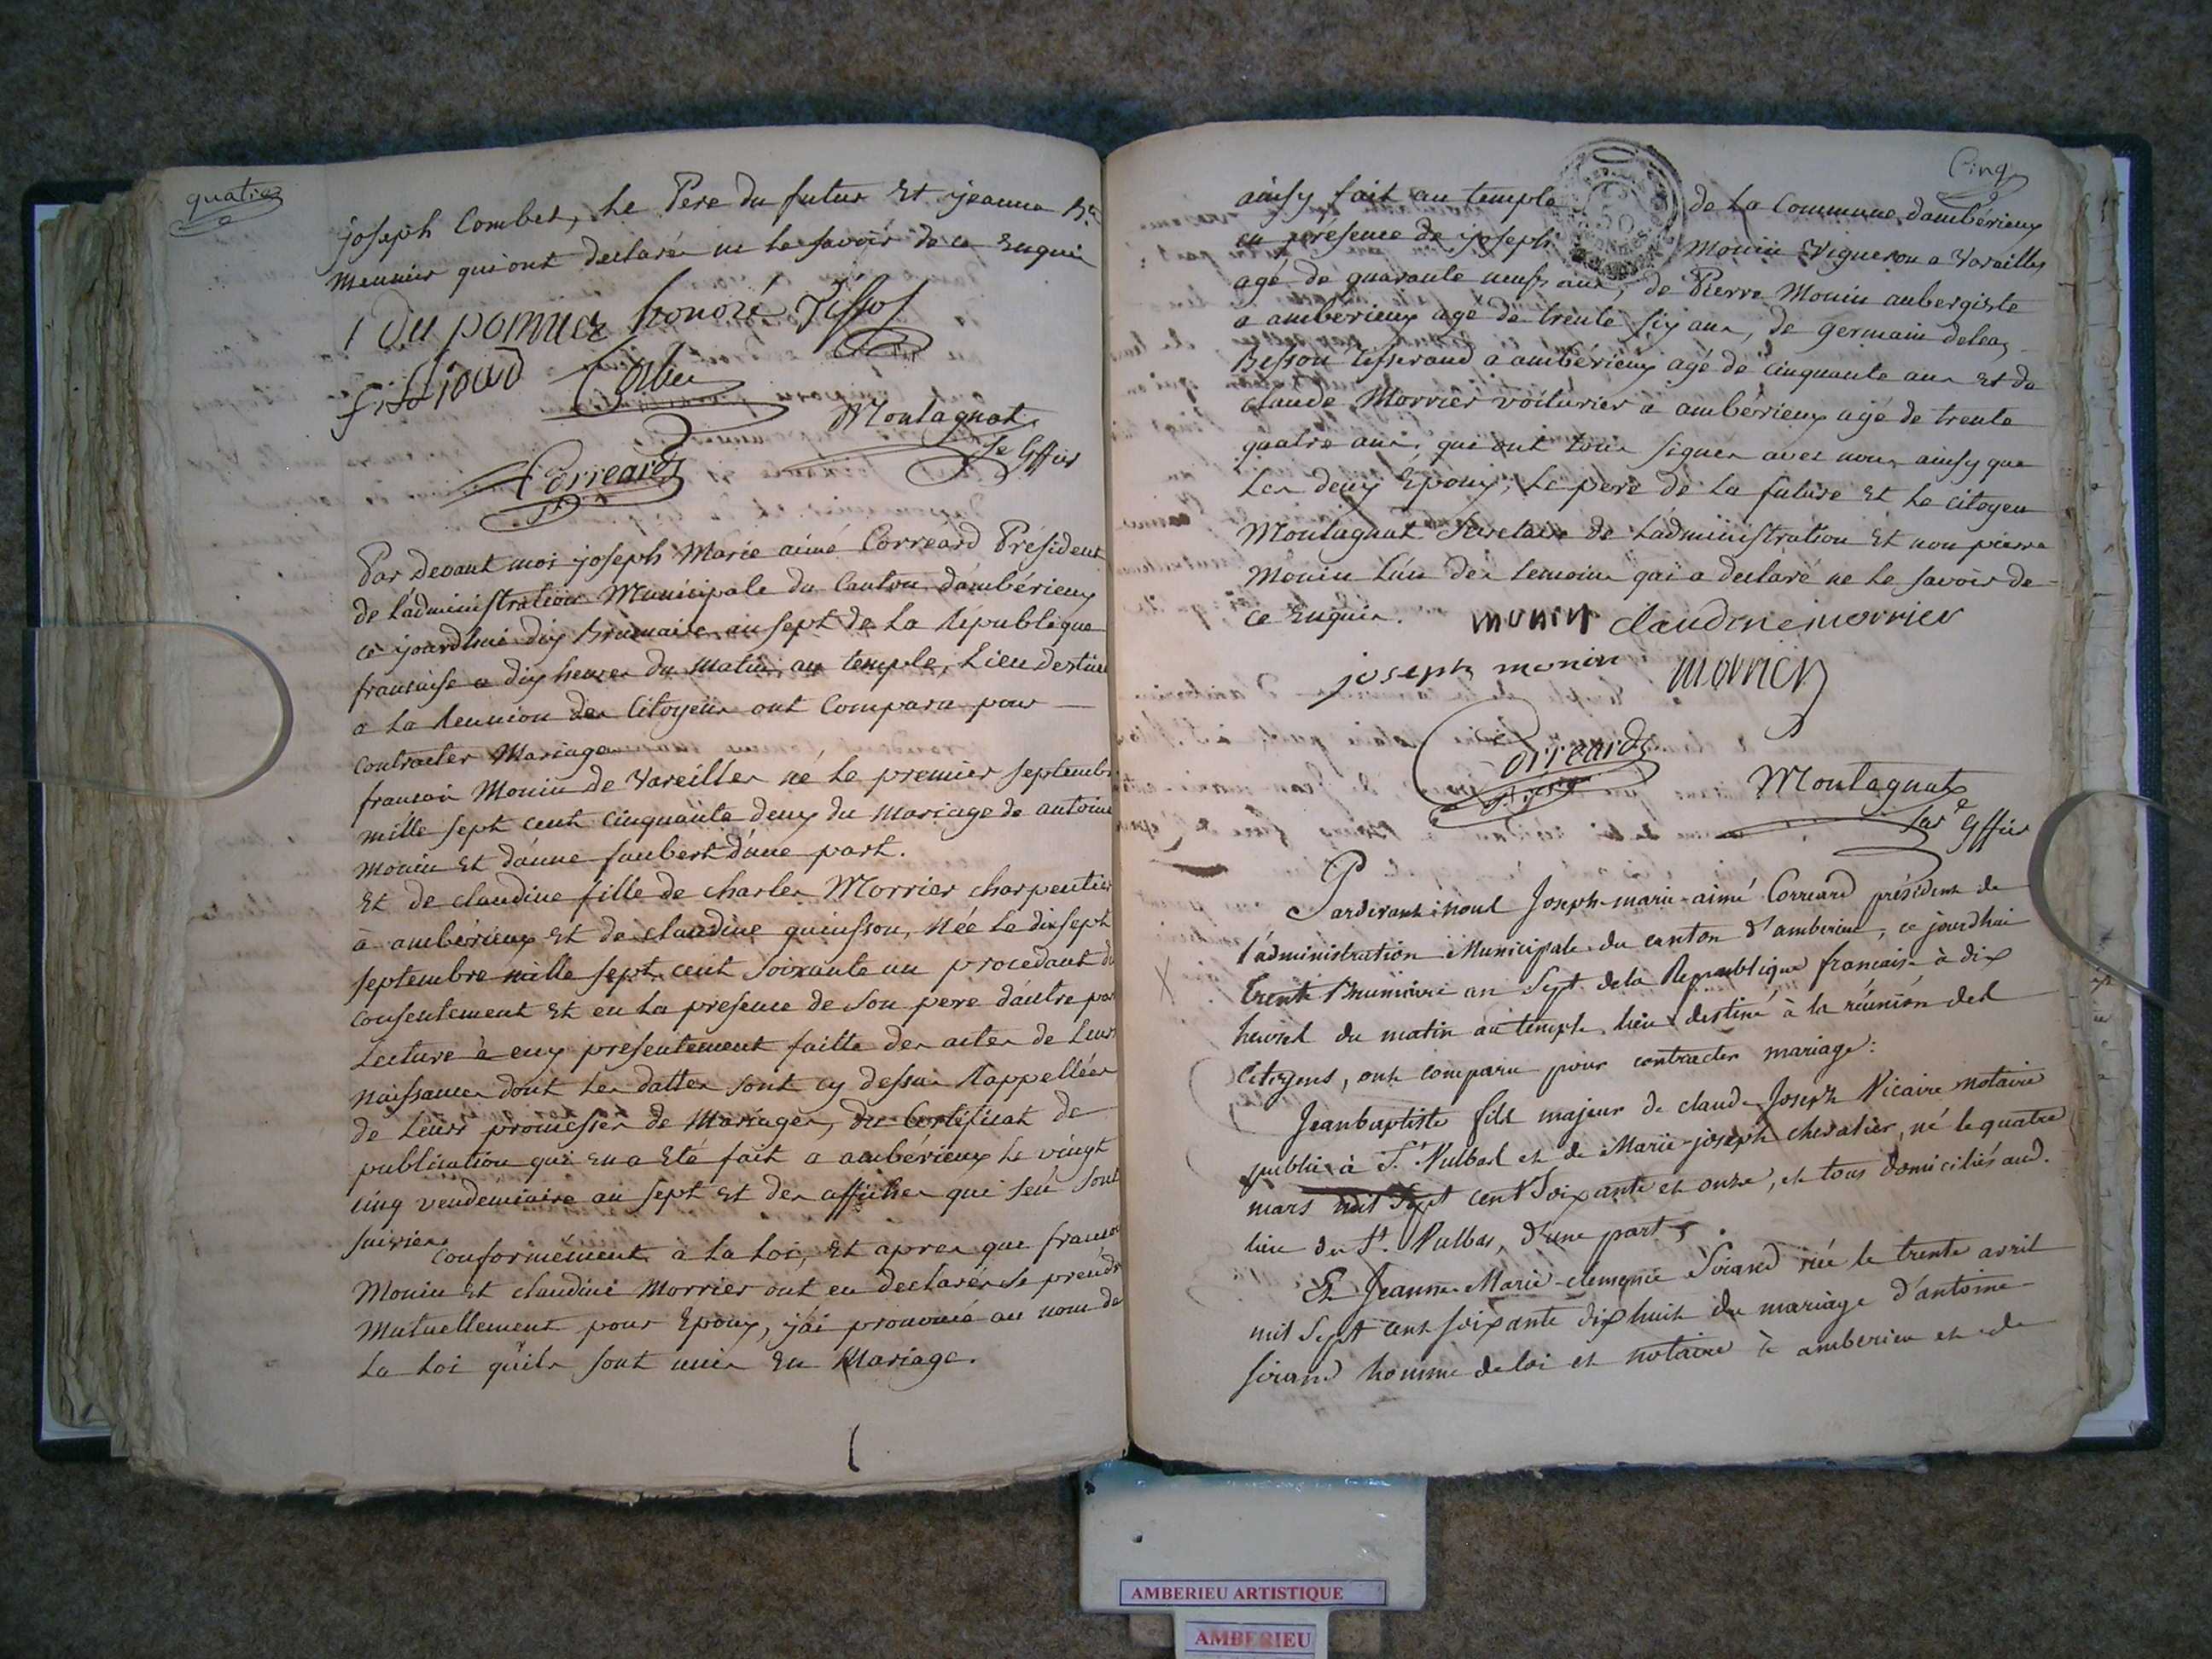 quatre
joseph Combet, Le Pere du futur Et jeanne
Meunier qui ont declaré ne le savoir de ce Enquis
Du pommier honoré Tissot
Montagnat
Correard
Par devant moi joseph Marie aimé Corréard Président
de L'administration Municipale du Canton d'ambérieux
ce jourdhui dix Brumaire an sept de La République
francaise a dix heures du matin au temple, Lieu destiné
a La Reunion des Citoyens ont Comparu pour
Contracter Mariage
francois Monin de Vareilles né Le premier septembre
mille sept cent cinquante deux du Mariage de antoine
Monin Et d'anne faubert d'une part.
Et de claudine fille de charles Morrier charpentier
à ambérieux Et de claudine guinsson, Née Le dixsept
septembre mille sept cent soixante un procedant du
consentement Et en La presence de son pere d'autre part
Lecture à eux presentement faitte des actes de Leurs
naissances dont Les dattes sont cy dessus Rappellées
de Leurs promesses de Mariages, du Certificat de
publication qui en a Eté fait a ambérieux Le vingt
cinq vendemiaire an sept Et des affiches qui s'en sont
suivies
Conformément à La Loi, Et apres que francois
Monin Et claudine Morrier ont eu declarés Se prendre
Mutuellement pour Epoux, j'ai prononcé au nom de
La Loi qu'ils sont unis En Mariage.
Cinq
ainsy fait au temple de La Commune d'ambérieux
en presence de joseph Monin Vigneron a Vareilles
agé de quarante neuf ans, de Pierre Monin aubergiste
a amberieux agé de trente six ans, de germain
Besson tisserand a ambérieux agé de cinquante ans Et de
claude Morrier voiturier a ambérieux agé de trente
quatre ans, qui ont tous signer avec nous ainsy que
Les deux Epoux, Le pere de La future Et Le Citoyen
Montagnat Secretaire de L'administration Et non pierre
Monin L'un des temoins qui a declaré ne Le savoir de
ce Enquis. monin claudine morrier
joseph monin morrier
Correard
Montagnat
Pardevant nous Joseph-marie-aimé Correard président de
l'administration Municipale du canton d'amberieu, ce jourdhui
trente Brumaire an Sept de la Republique francaise à dix
heures du matin au temple lieu destiné à la réunion des
Citoyens, ont comparu pour contracter mariage:
Jeanbaptiste fils majeur de claude Joseph Vicaire notaire
public à St. Vulbas et de Marie-joseph chevalier, né le quatre
mars mil Sept cent Soixante et onze, et tous domiciliés aud.
lieu de St. Vulbas, d'une part,
Et Jeanne-Marie-clemence Sirand née le trente avril
mil Sept cent soixante dix huit du mariage d'antoine
sirand homme de loi et notaire à amberieu et de
AMBERIEU ARTISTIQUE
AMBERIEU